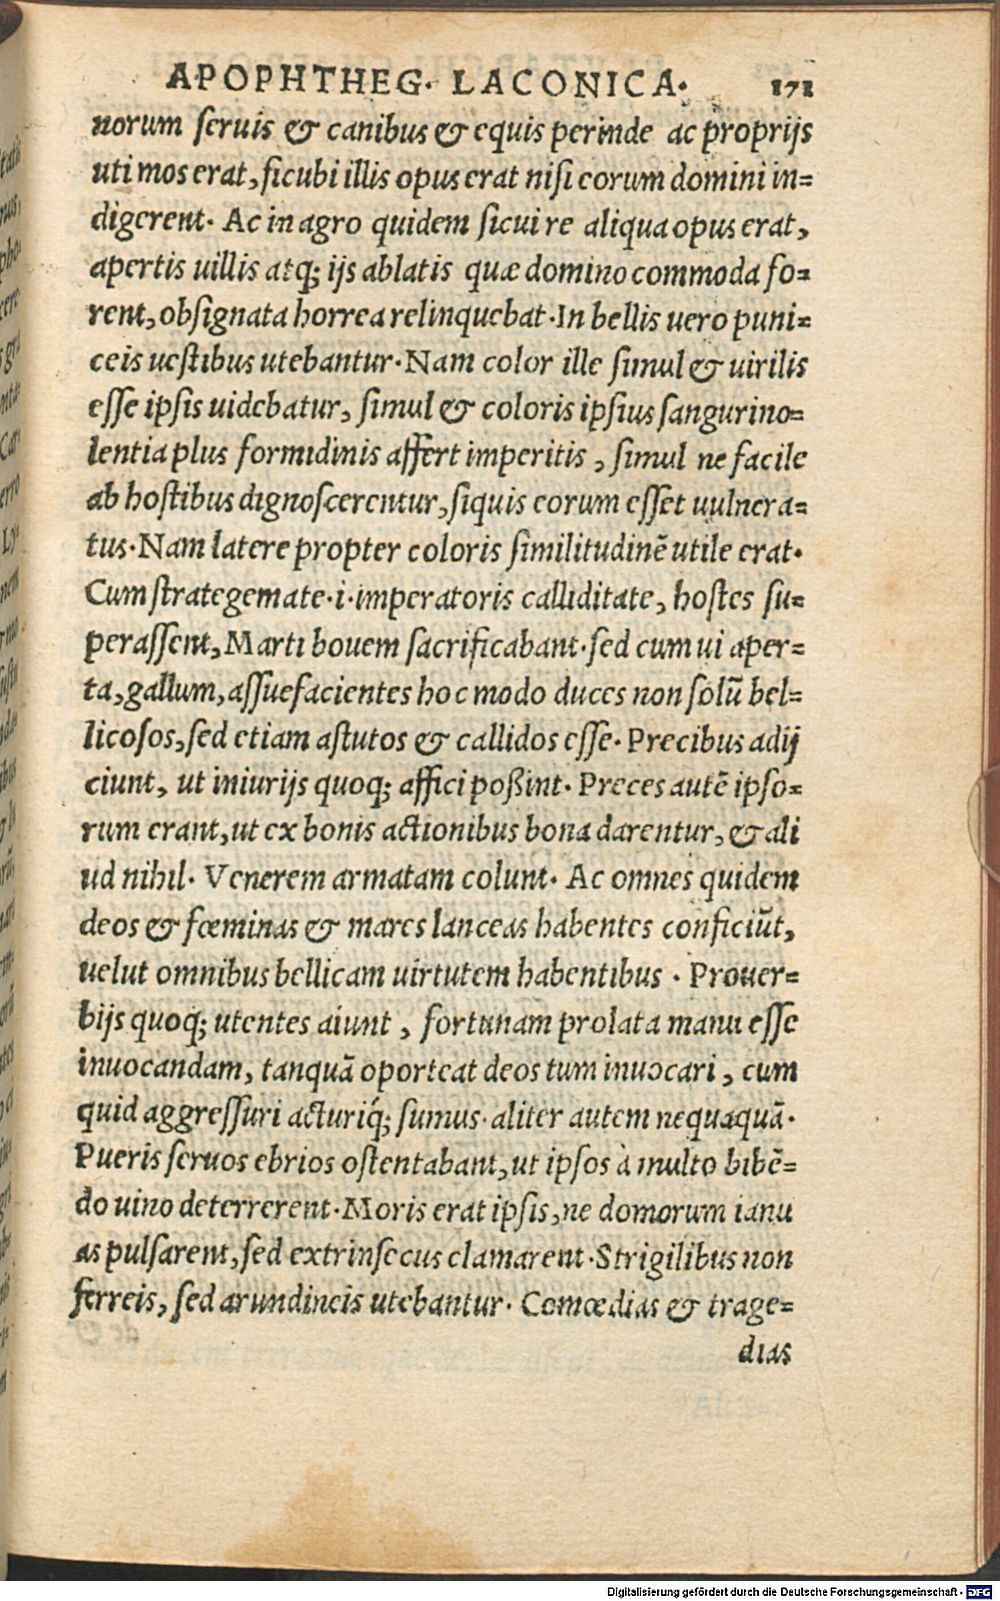 APOPHTHEG. LACONICA. 171
norum seruis & canibus & equis perinde ac proprijs
uti mos erat, sicubi illis opus erat nisi eorum domini in=
digerent. Ac in agro quidem sicui re aliqua opus erat,
apertis uillis atq; ijs ablatis quæ domino commoda fo=
rent, obsignata horrea relinquebat. In bellis uero puni=
ceis uestibus utebantur. Nam color ille simul & uirilis
esse ipsis uidebatur, simul & coloris ipsius sangurino=
lentia plus formidinis affert imperitis, simul ne facile
ab hostibus dignoscerentur, siquis eorum esset uulnera=
tus. Nam latere propter coloris similitudinē utile erat.
Cum strategemate .i. imperatoris calliditate, hostes su=
perassent, Marti bouem sacrificabant. sed cum ui aper=
ta, gallum, assuefacientes hoc modo duces non solū bel=
licosos, sed etiam astutos & callidos esse. Precibus adij
ciunt, ut iniurijs quoq; affici poßint. Preces autē ipso=
rum erant, ut ex bonis actionibus bona darentur, & ali
ud nihil. Venerem armatam colunt. Ac omnes quidem
deos & fœminas & mares lanceas habentes conficiūt,
uelut omnibus bellicam uirtutem habentibus. Prouer=
bijs quoq; utentes aiunt, fortunam prolata manu esse
inuocandam, tanquā oporteat deos tum inuocari, cum
quid aggressuri acturiq́; sumus. aliter autem nequaquā.
Pueris seruos ebrios ostentabant, ut ipsos à multo bibē=
do uino deterrerent. Moris erat ipsis, ne domorum ianu
as pulsarent, sed extrinsecus clamarent. Strigilibus non
ferreis, sed arundineis utebantur. Comœdias & trage=
dias
Digitalisierung gefördert durch die Deutsche Forschungsgemeinschaft - DFG